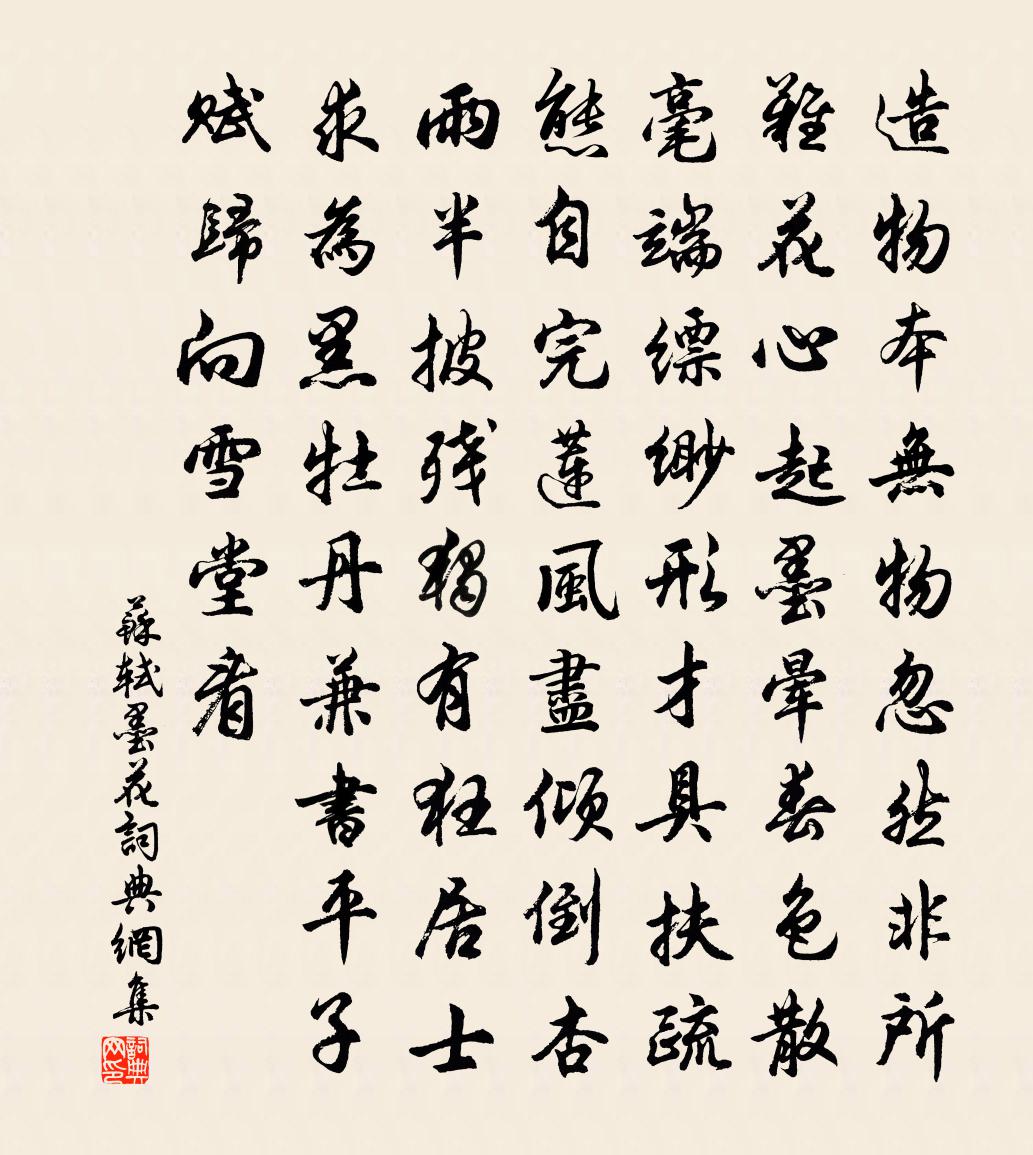 造物本無物忽然非所
難花心起墨暈春色散
毫端縹緲形才具扶疏
態自完蓮風盡傾倒杏
雨半披殘獨有狂居士
求為黑牡丹兼書平子
賦歸向雪堂看
蘇軾墨花詞典網集
詞典网印